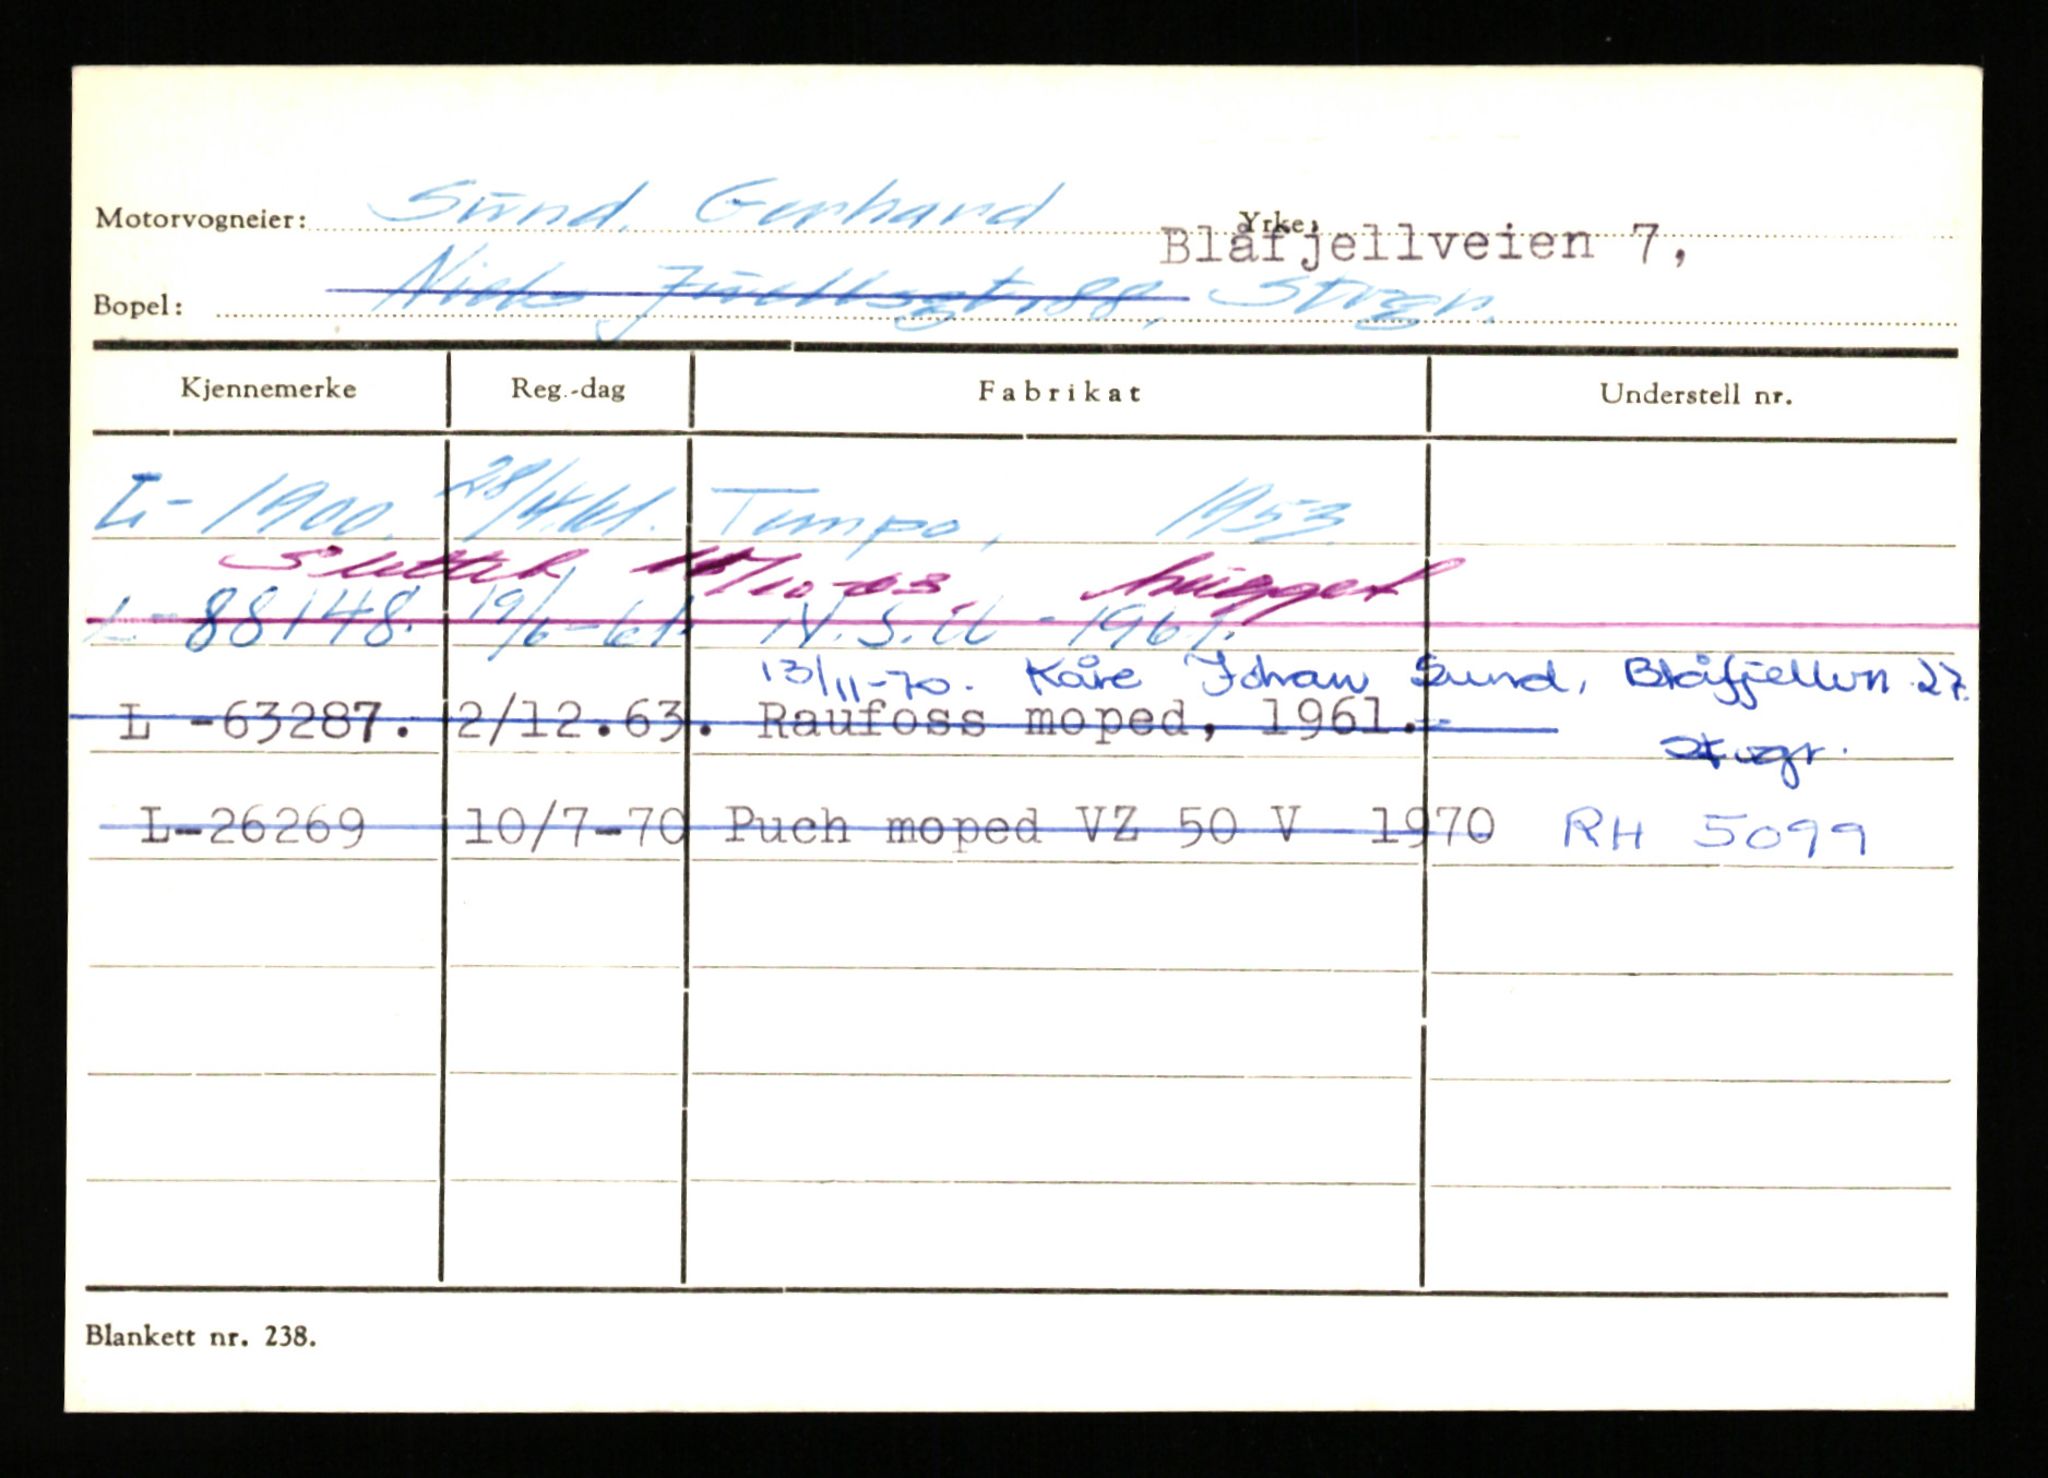 Motorvogneier: Sund, Gerhard Yrke:
Blåfjellveien 7,
Bopel: Niels Juellsgt. 88, Stvgr.
Kjennemerke Reg.-dag Fabrikat Understell nr.
L-1900. 28/4.61. Tempo, 1953.
Slettet 10-63, hugget
L-88148. 19/6-61. N.S.U - 1961.
13/11-70. Kåre Johan Sund, Blåfjellvn 27.
L -63287. 2/12.63. Raufoss moped, 1961.
Stvgr.
L-26269 10/7-70 Puch moped VZ 50 V 1970 RH 5099
Blankett nr. 238.